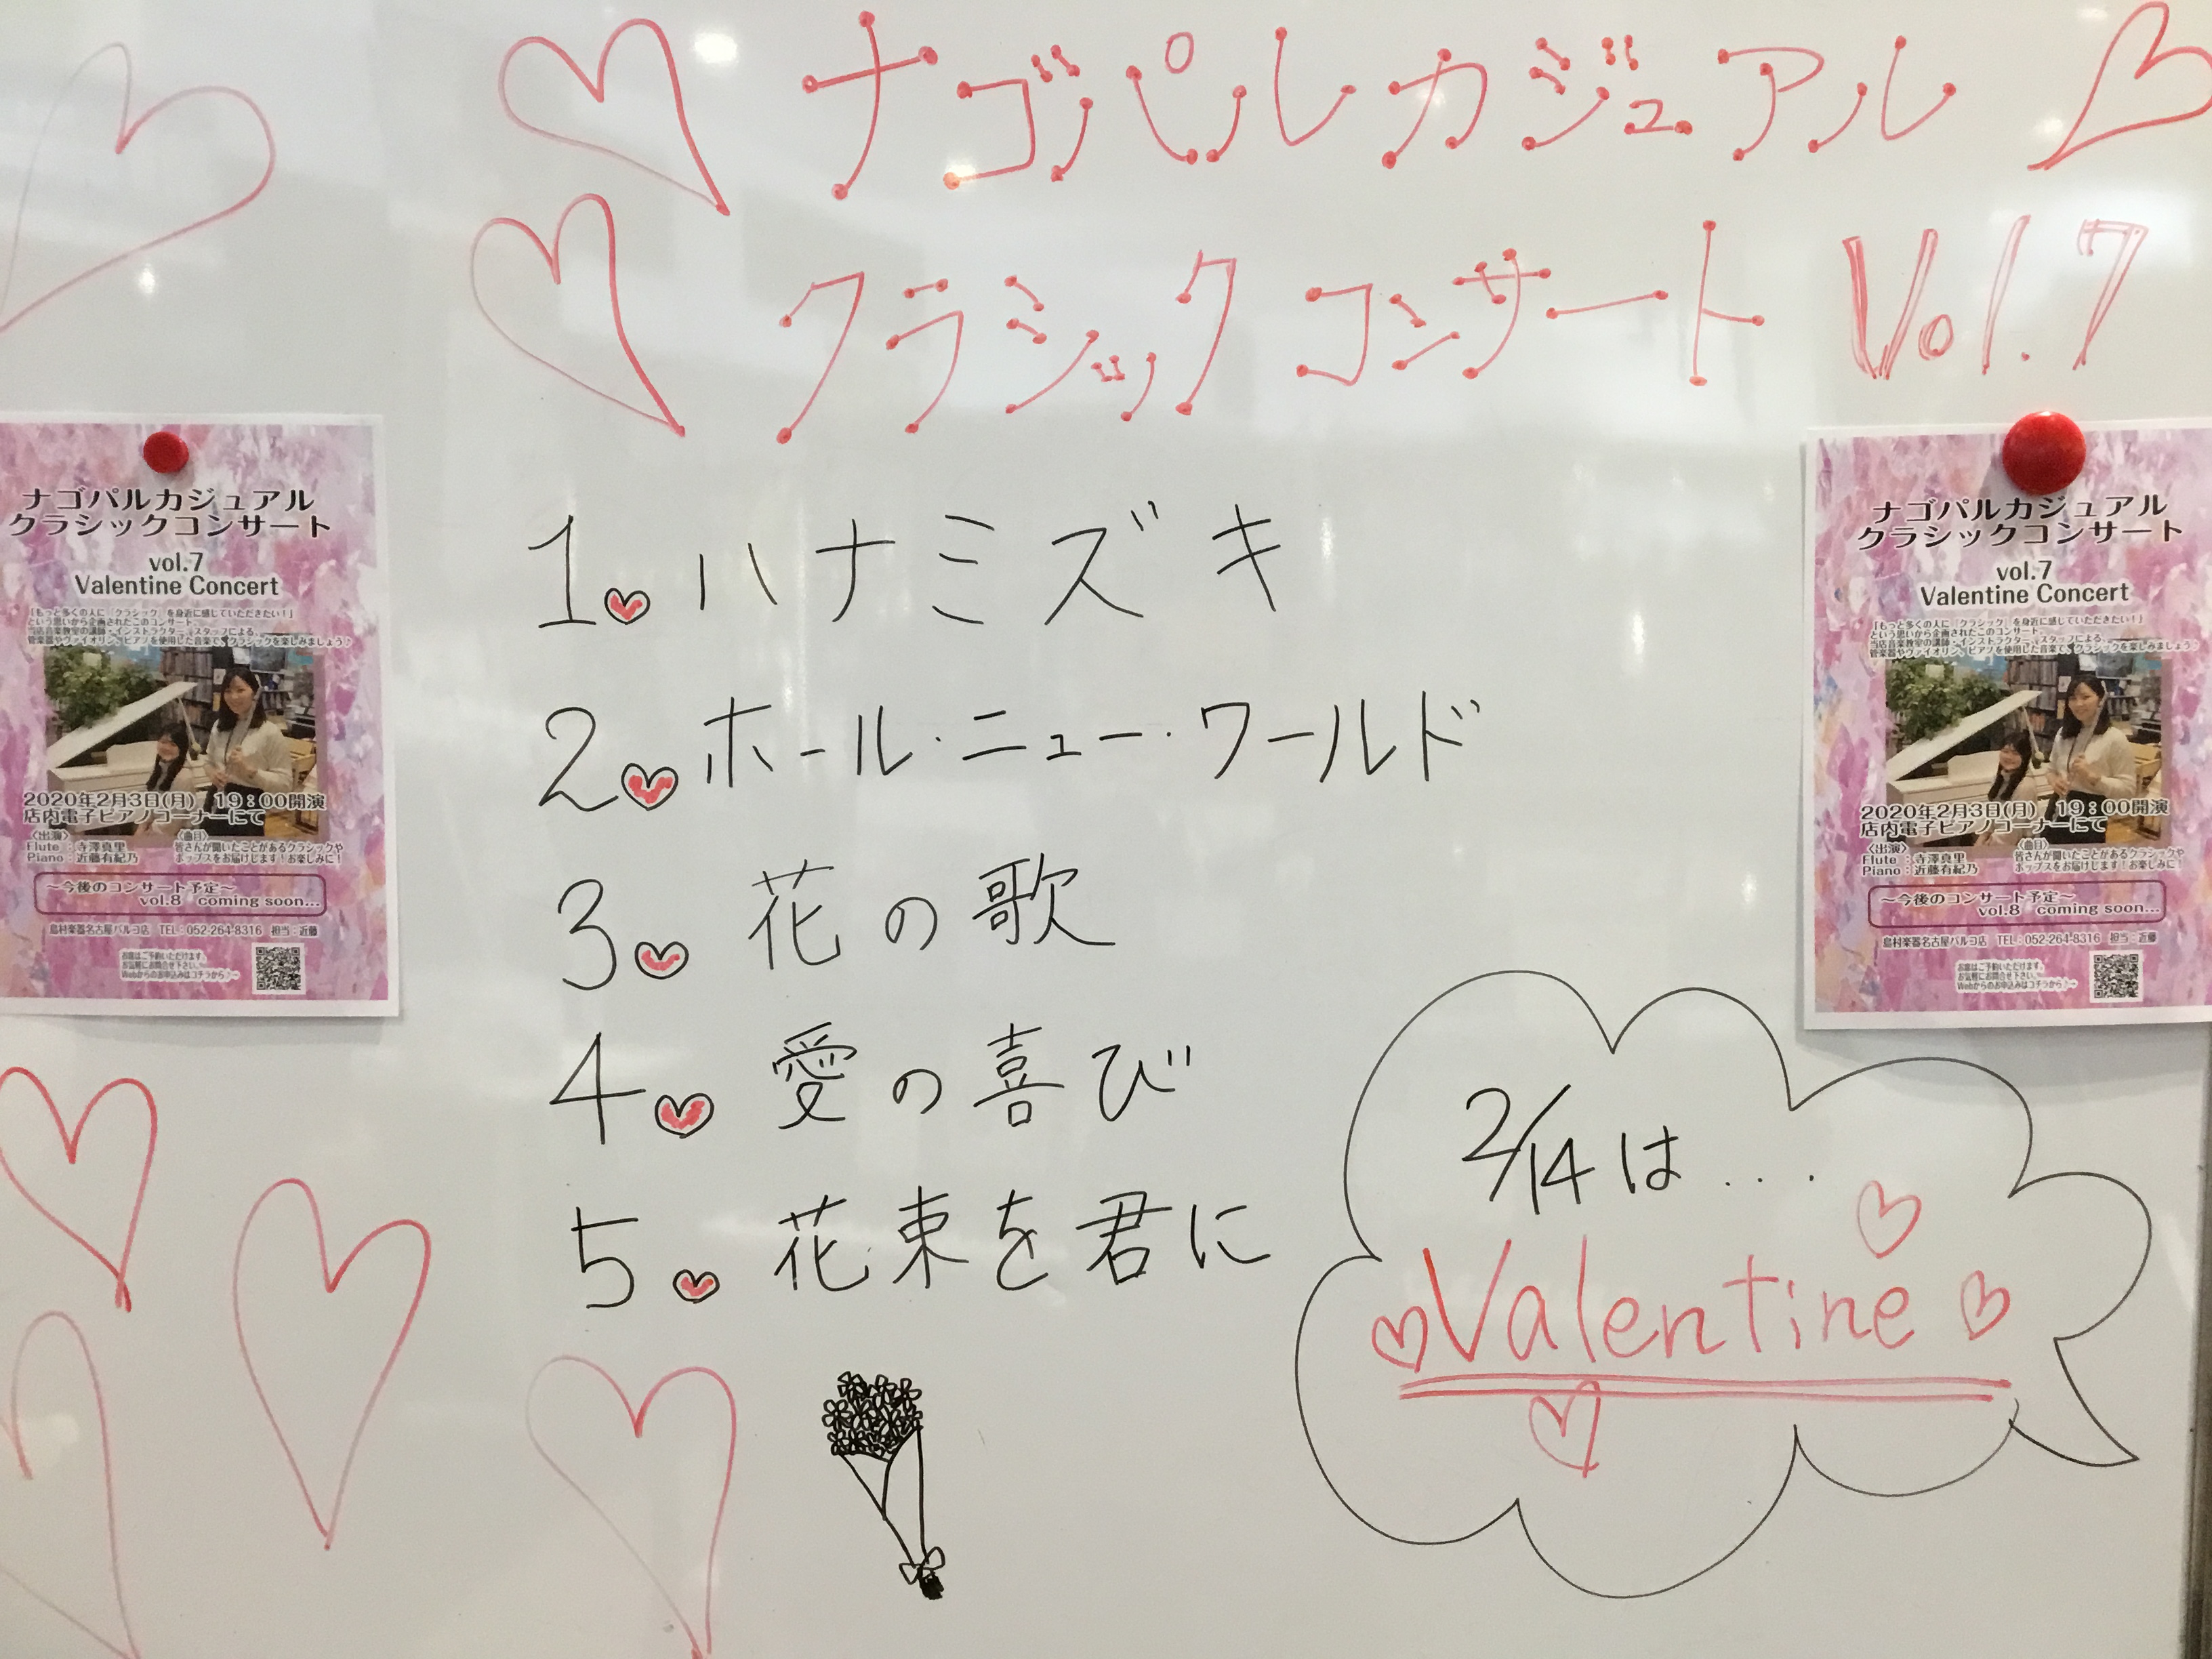 ナゴパルカジュアル
クラシックコンサート Vol.7
1. ハナミズキ
2. ホール・ニュー・ワールド
3. 花の歌
4. 愛の喜び
5. 花束を君に
2/14は...
Valentine
ナゴパルカジュアル
クラシックコンサート
vol.7
Valentine Concert
「もっと多くの人に「クラシック」を身近に感じていただきたい!」
という思いから企画されたこのコンサート。
当店音楽教室の講師・インストラクター、スタッフによる、
管楽器やヴァイオリン、ピアノを使用した音楽で、クラシックを楽しみましょう♪
2020年2月3日(月) 19:00開演
店内電子ピアノコーナーにて
〈出演〉
Flute:寺澤真里
Piano:近藤有紀乃
〈曲目〉
皆さんが聞いたことがあるクラシックや
ポップスをお届けします!お楽しみに!
~今後のコンサート予定~
vol.8 coming soon...
島村楽器名古屋パルコ店 TEL:052-264-8316 担当:近藤
お席はご予約いただけます。
お気軽にお問合せ下さい。
Webからのお申込みはコチラから♪→
ナゴパルカジュアル
クラシックコンサート
vol.7
Valentine Concert
「もっと多くの人に「クラシック」を身近に感じていただきたい!」
という思いから企画されたこのコンサート。
当店音楽教室の講師・インストラクター、スタッフによる、
管楽器やヴァイオリン、ピアノを使用した音楽で、クラシックを楽しみましょう♪
2020年2月3日(月) 19:00開演
店内電子ピアノコーナーにて
〈出演〉
Flute:寺澤真里
Piano:近藤有紀乃
〈曲目〉
皆さんが聞いたことがあるクラシックや
ポップスをお届けします!お楽しみに!
~今後のコンサート予定~
vol.8 coming soon...
島村楽器名古屋パルコ店 TEL:052-264-8316 担当:近藤
お席はご予約いただけます。
お気軽にお問合せ下さい。
Webからのお申込みはコチラから♪→